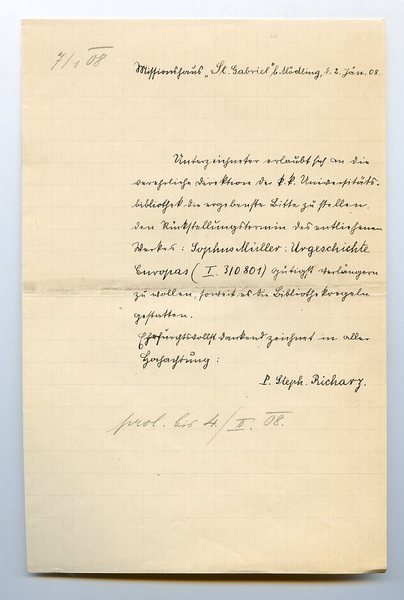 7/1 08
Missionshaus „St. Gabriel" b. Mödling, d. 2. Jän. 08.
Unterzeichneter erlaubt sich an die
verehrliche Direktion der k. k. Universitäts-
bibliothek die ergebenste Bitte zu stellen,
den Rückstellungstermin des entliehenen
Werkes: Sophus Müller: Urgeschichte
Europas (I. 310801) gütigst verlängern
zu wollen, soweit es die Bibliotheksregeln
gestatten.
Ehrfurchtsvollst dankend zeichnet in aller
Hochachtung:
P. Steph. Richarz.
prol. bis 4./II. 08.